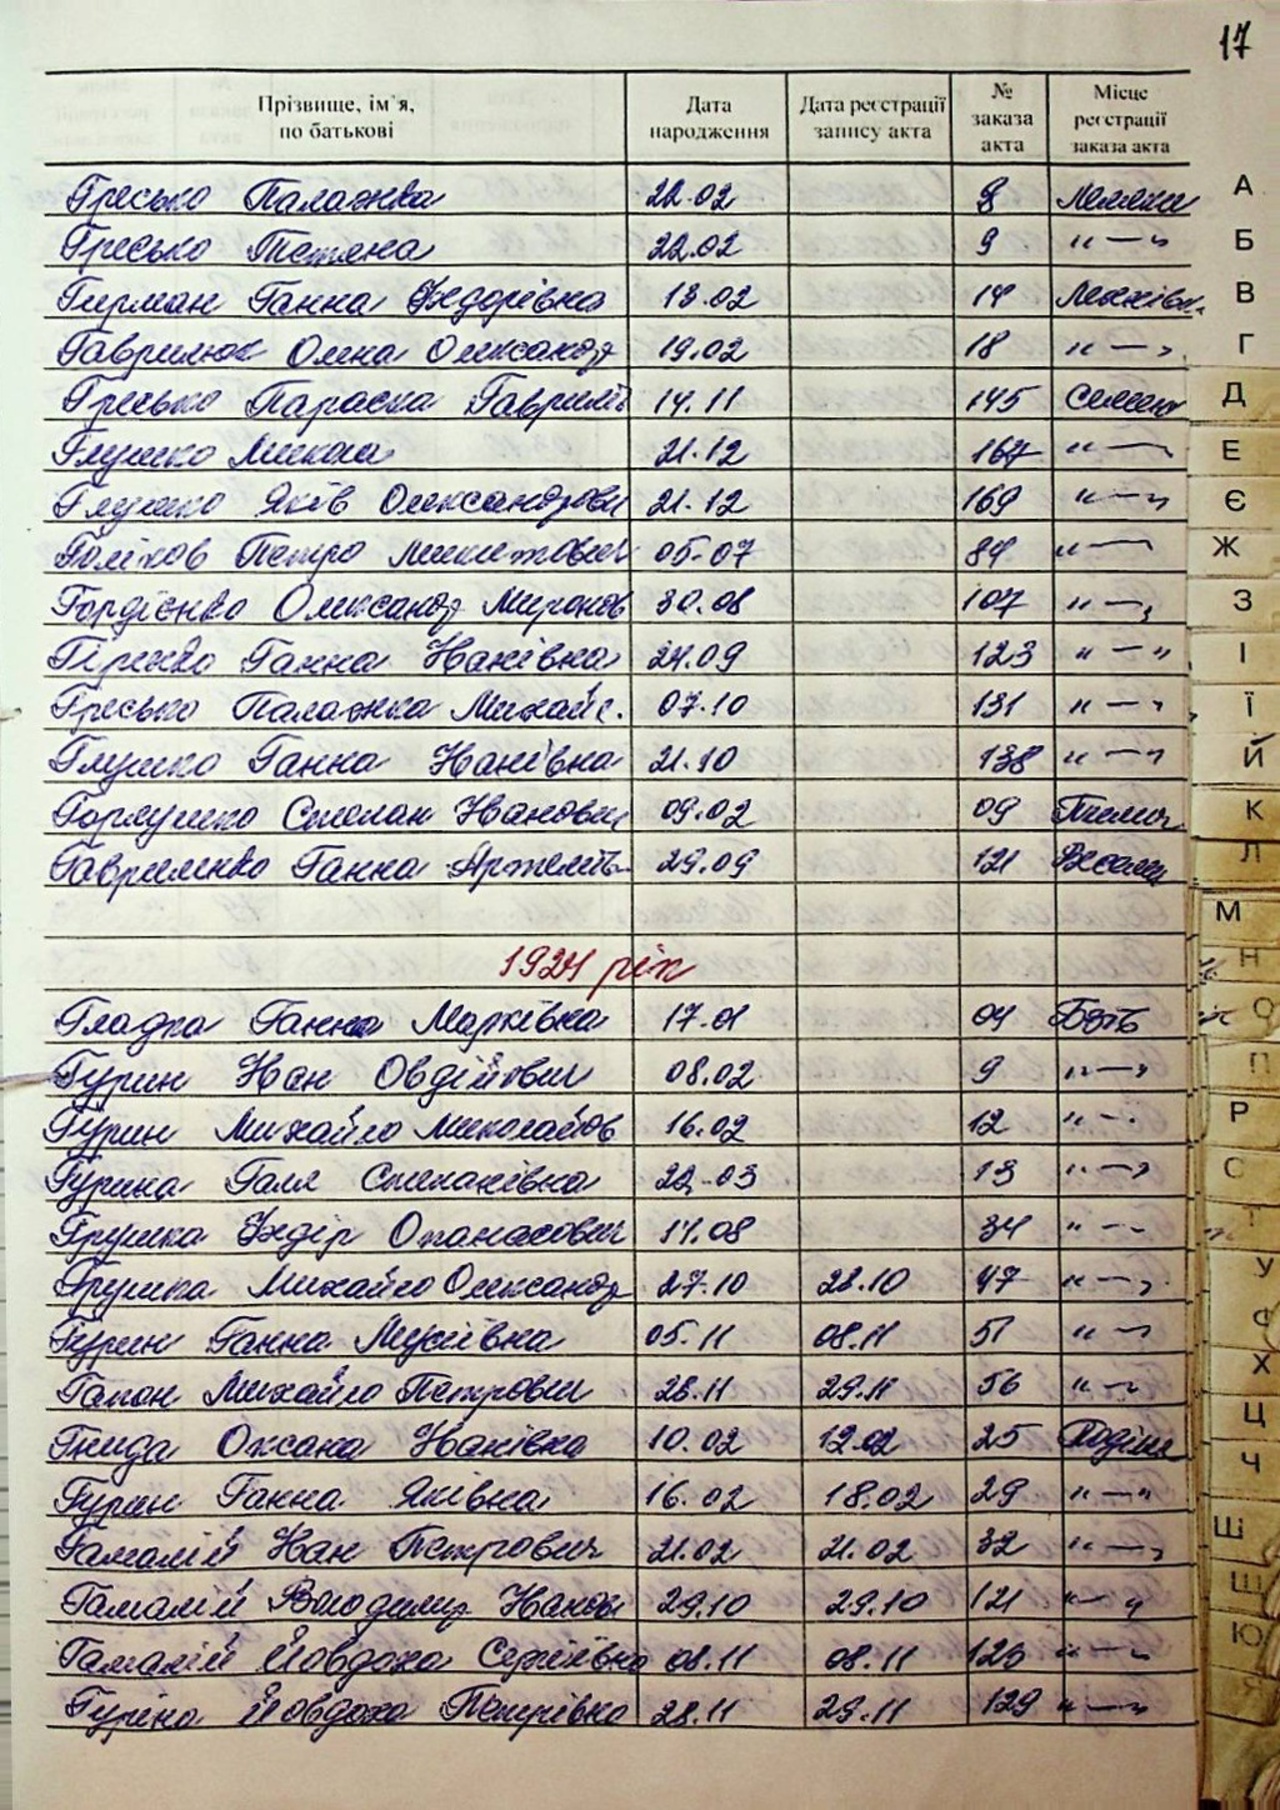 17
Прізвище, ім'я, по батькові Дата народження Дата реєстрації запису акта № заказа акта Місце реєстрації заказа акта
Гресько Палажка 22.02 8
Гресько Тетяна 22.02 9 "—"
Гирман Ганна Федорівна 13.02 14
Гаврилюк Олена Олександр 19.02 18 "—"
Гресько Параска Гаврилів 14.11 145 Семен
Глушко Микола 21.12 167 "—
Глушко Яків Олександрови 21.12 169 "—"
Голіков Петро Микитович 05.07 84 "—
Гордієнко Олександр Миронов 30.08 107 "—"
Гіренко Ганна Іванівна 24.09 123 "—"
Гресько Палажка Михайл. 07.10 131 "—"
Глушко Ганна Іванівна 21.10 138 "—"
Горлушко Степан Іванович 09.02 09
Гавриленко Ганна Артемів 29.09 121
1924 рік
Гладка Ганна Марківна 17.01 04
Гурин Іван Овдійович 08.02 9 "—"
Гурин Михайло Миколайов 16.02 12 "—"
Гурина Галя Степанівна 22.03 13 "—"
Грушка Федір Опанасович 17.08 34 "—"
Грушка Михайло Олександр 27.10 28.10 47 "—"
Гурин Ганна Мусіївна 05.11 08.11 51 "—"
Гапон Михайло Петрович 28.11 29.11 56 "—"
Гнида Оксана Іванівна 10.02 12.02 25
Гурин Ганна Яківна 16.02 18.02 29 "—"
Гамалій Іван Петрович 21.02 21.02 32 "—"
Гамалій Володимир Іванов 29.10 29.10 121 "—"
Гамалій Йовдоха Сергіївна 08.11 08.11 "—"
Гуріна Йовдоха Петрівна 28.11 29.11 129 "—"
А
Б
В
Г
Д
Е
Є
Ж
З
І
Ї
Й
К
Л
М
Н
О
П
Р
С
Т
У
Ф
Х
Ц
Ч
Ш
Щ
Ю
Я